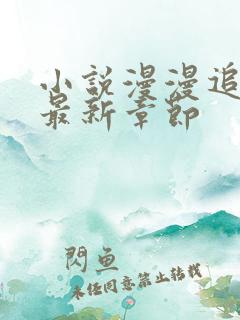 小說漫漫追
最新章節
閃魚
未经同意禁止转载